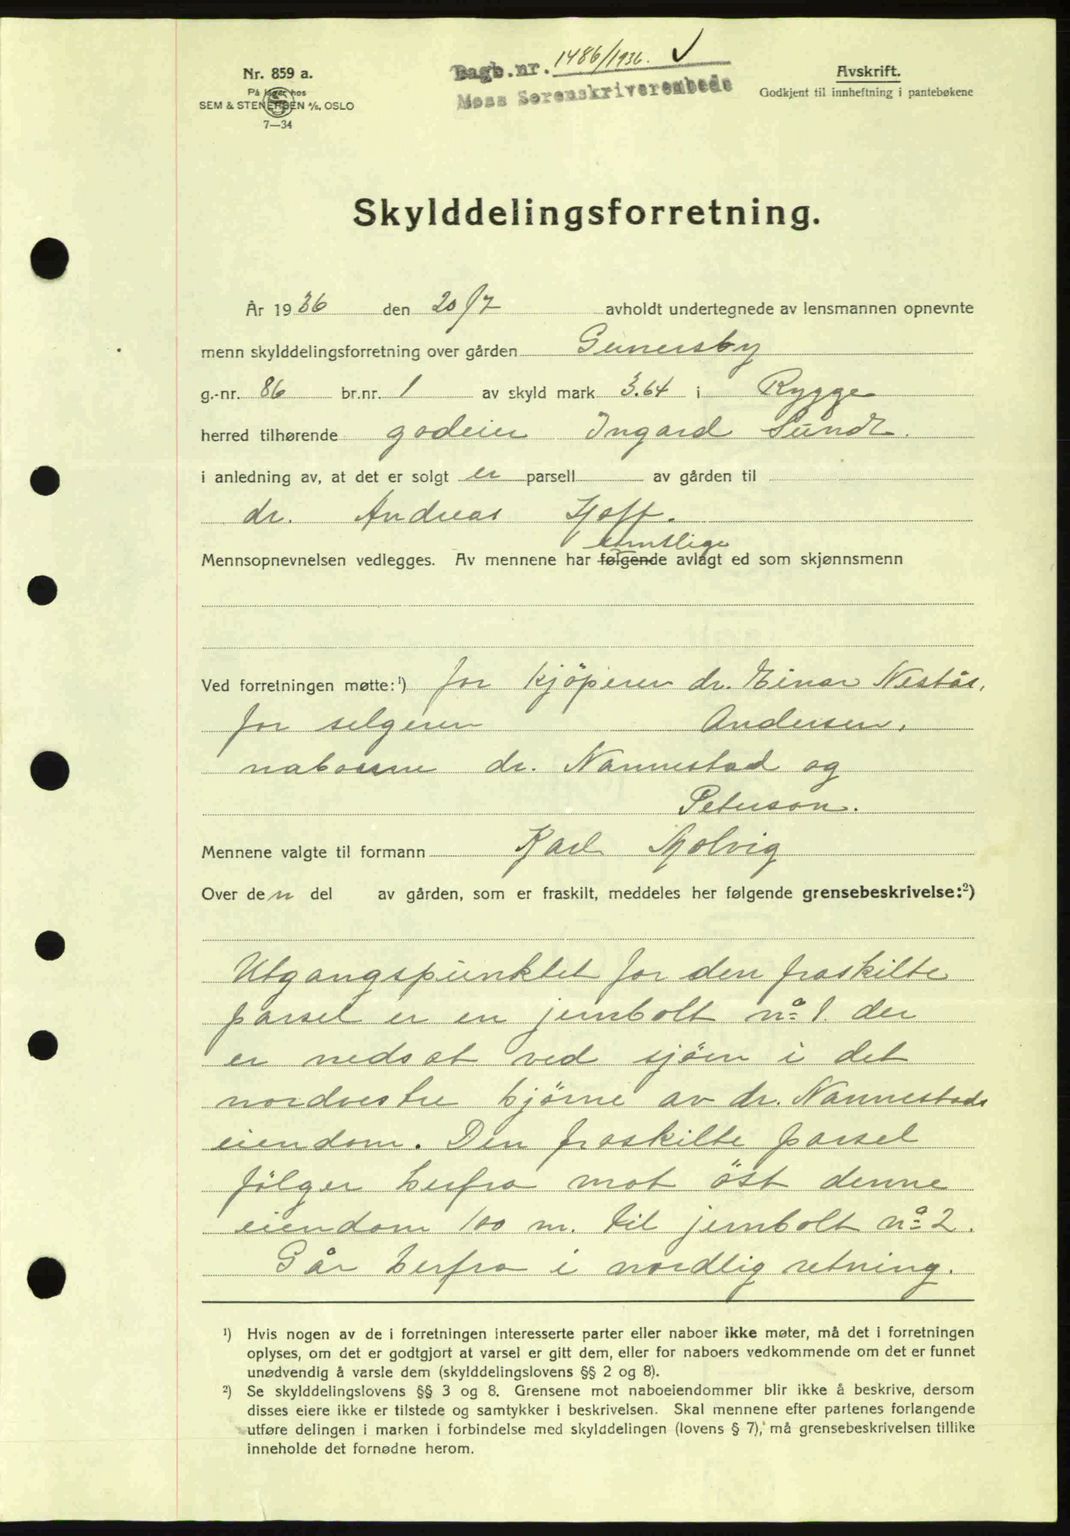 Nr. 859 a.
På lager hos
SEM & STENERSEN A/S, OSLO
7—34
Dagb.nr. 1486/1936. ✓
Moss Sorenskriverembede
Avskrift.
Godkjent til innheftning i pantebøkene
Skylddelingsforretning.
År 1936 den 20/7 avholdt undertegnede av lensmannen opnevnte
menn skylddelingsforretning over gården Gunersby
g.-nr. 86 br.nr. 1 av skyld mark 3.64 i Rygge
herred tilhørende godeier Ingard Sundt.
i anledning av, at det er solgt er parsell av gården til
dr. Andreas Hoff.
samtlige
Mennsopnevnelsen vedlegges. Av mennene har følgende avlagt ed som skjønnsmenn
Ved forretningen møtte:¹) for kjöperen dr. Einar Nestås,
for selgeren Andersen,
naboerne dr. Nannestad og
Peterson.
Mennene valgte til formann Karl Molvig
Over den del av gården, som er fraskilt, meddeles her følgende grensebeskrivelse:²)
Utgangspunktet for den fraskilte
parsel er en jernbolt nº 1. der
er nedsat ved sjöen i det
nordvestre hjörne av dr. Nannestads
eiendom. Den fraskilte parsel
fölger herfra mot öst denne
eiendom 100 m. til jernbolt nº 2.
Går herfra i nordlig retning.
¹) Hvis nogen av de i forretningen interesserte parter eller naboer ikke møter, må det i forretningen
oplyses, om det er godtgjort at varsel er gitt dem, eller for naboers vedkommende om det er funnet
unødvendig å varsle dem (skylddelingslovens §§ 2 og 8).
²) Se skylddelingslovens §§ 3 og 8. Grensene mot naboeiendommer blir ikke å beskrive, dersom
disses eiere ikke er tilstede og samtykker i beskrivelsen. Skal mennene efter partenes forlangende
utføre delingen i marken i forbindelse med skylddelingen (lovens § 7), må grensebeskrivelsen tillike
inneholde det fornødne herom.